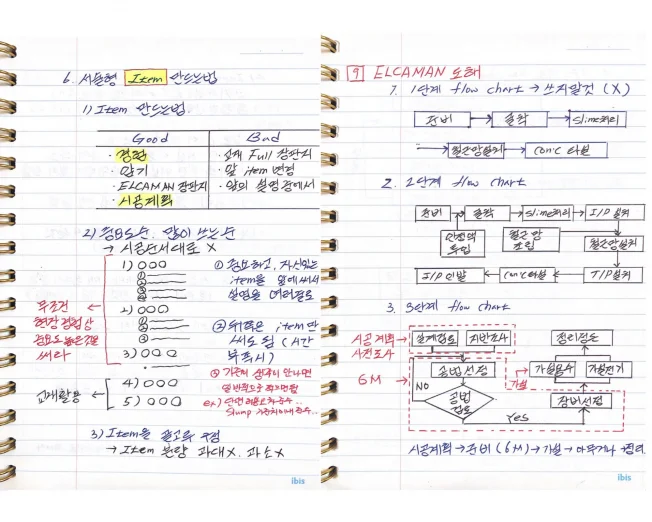 6. 서술형 Item 만드는법
1) Item 만드는법.
Good Bad
· 경험 · 교재 Full 장판지
· 암기 · 앞 item 변경
· ELCAMAN 장판지 · 앞의 설명중에서
· 시공계획
2) 중요도순, 많이 쓰는순
→ 시공순서대로 X
1) ○○○
①
②
③
④
2) ○○○
①
②
③
3) ○○○
4) ○○○
5) ○○○
무조건
현장경험상
중요도 높은것은
써라
교재활용
① 중요하고, 자신있는
item을 앞에 써서
설명을 여러줄로
② 뒤쪽은 item만
써도 됨 (시간
부족시)
③ 기준이 생각이 안나면
ex)
3) Item을 골고루 구성
→ Item 분량 과대X. 과소X
ibis
9 ELCAMAN 도해
1. 1단계 flow chart → 쓰지말것 (X)
준비 → 굴착 → Slime처리
→ 철근망설치 → Con'c 타설
2. 2단계 flow chart
준비 → 굴착 → Slime처리 → I/P 설치
안정액 투입
철근망 조립
철근망설치
I/P 인발 ← Con'c타설 ← T/P설치
3. 3단계 flow chart
시공계획
사전조사
설계검토
지반조사
정리정돈
6M →
공법선정
가설용수
가설전기
가설
NO
공법
검토
YES
장비선정
시공계획 → 준비 (6M) → 가설 → 마무리 → 정리
ibis